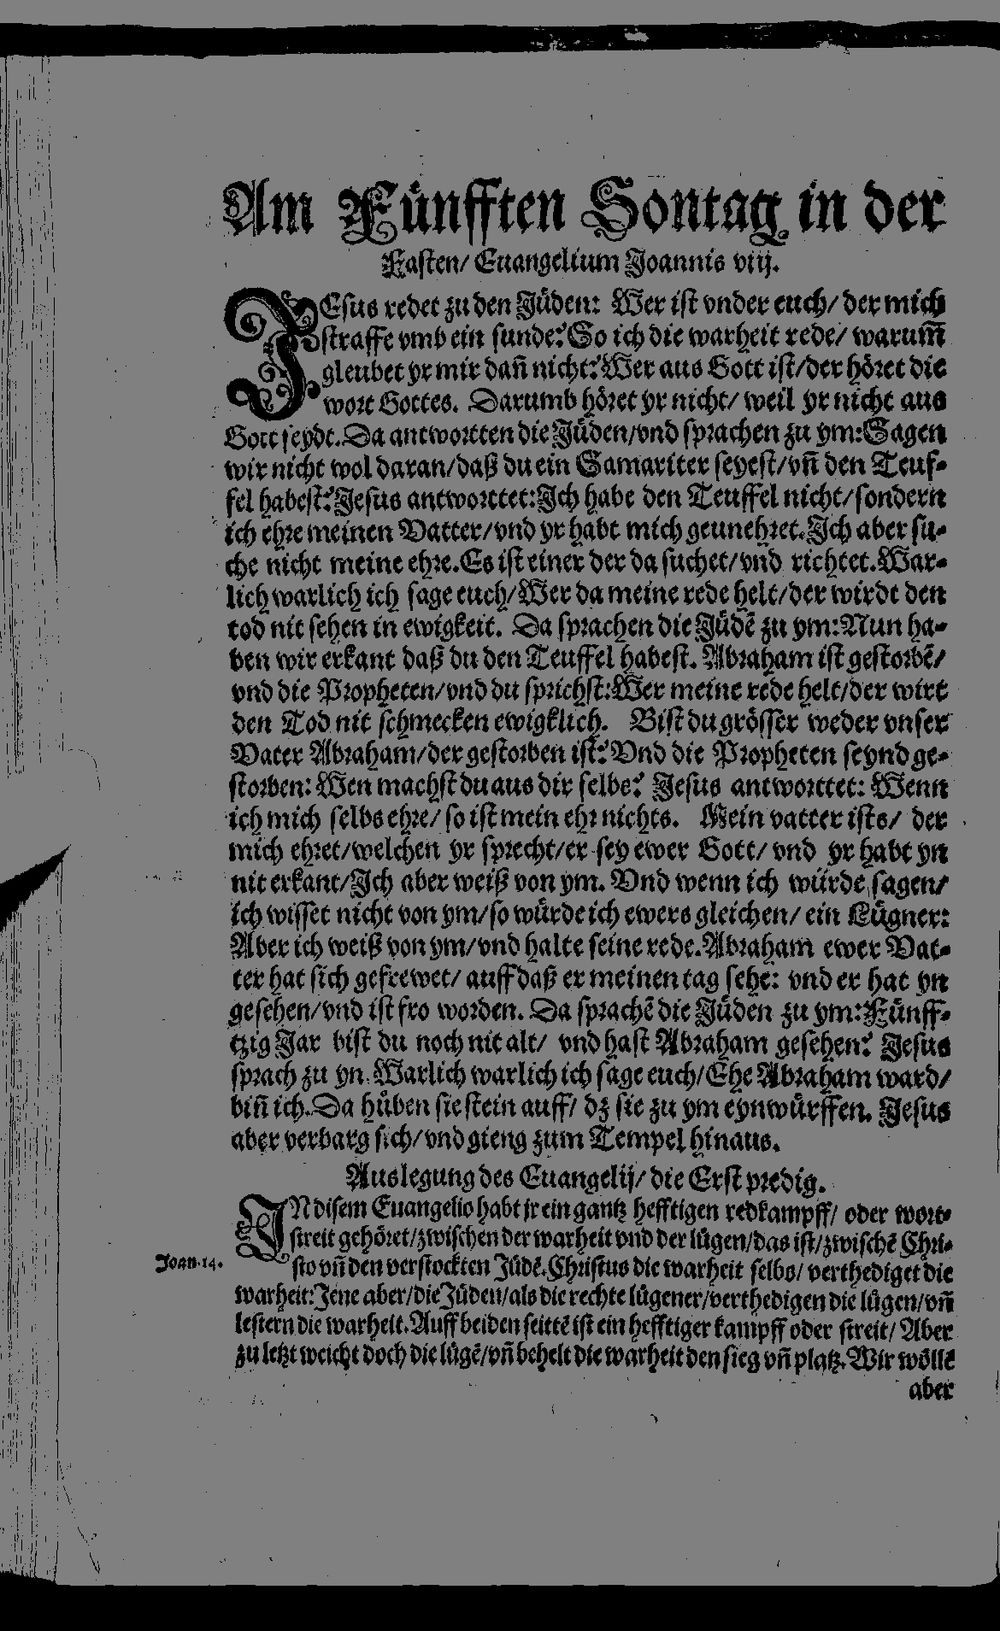 Am Fünfften Sontag in der
Fasten/ Euangelium Joannis viij.
JEsus redet zu den Jüden: Wer ist vnder euch/ der mich
straffe vmb ein sunde? So ich die warheit rede/ warum̃
gleubet yr mir dañ nicht? Wer aus Gott ist/ der höret die
wort Gottes. Darumb höret yr nicht/ weil yr nicht aus
Gott seydt. Da antwortten die Jüden/ vnd sprachen zu ym: Sagen
wir nicht wol daran/ daß du ein Samariter seyest/ vñ den Teuf-
fel habest? Jesus antworttet: Ich habe den Teuffel nicht/ sondern
ich ehre meinen Vatter/ vnd yr habt mich geunehret. Ich aber su-
che nicht meine ehre. Es ist einer der da suchet/ vnd richtet. War-
lich warlich ich sage euch/ Wer da meine rede helt/ der wirdt den
tod nit sehen in ewigkeit. Da sprachen die Jüdẽ zu ym: Nun ha-
ben wir erkant daß du den Teuffel habest. Abraham ist gestorbẽ/
vnd die Propheten/ vnd du sprichst: Wer meine rede helt/ der wirt
den Tod nit schmecken ewigklich. Bist du grösser weder vnser
Vater Abraham/ der gestorben ist? Vnd die Propheten seynd ge-
storben: Wen machst du aus dir selbs? Jesus antworttet: Wenn
ich mich selbs ehre/ so ist mein ehr nichts. Mein vatter ists/ der
mich ehret/ welchen yr sprecht/ er sey ewer Gott/ vnd yr habt yn
nit erkant/ Ich aber weiß von ym. Vnd wenn ich würde sagen/
ich wisset nicht von ym/ so würde ich ewers gleichen/ ein Lügner:
Aber ich weiß von ym/ vnd halte seine rede. Abraham ewer Vat-
ter hat sich gefrewet/ auff daß er meinen tag sehe: vnd er hat yn
gesehen/ vnd ist fro worden. Da sprachẽ die Jüden zu ym: Fünff-
tzig Jar bist du noch nit alt/ vnd hast Abraham gesehen? Jesus
sprach zu yn. Warlich warlich ich sage euch/ Ehe Abraham ward/
biñ ich. Da hüben sie stein auff/ dz sie zu ym eynwürffen. Jesus
aber verbarg sich/ vnd gieng zum Tempel hinaus.
Auslegung des Euangelij/ die Erst predig.
IN disem Euangelio habt jr ein gantz hefftigen redkampff/ oder wort-
streit gehöret/ zwischen der warheit vnd der lügen/ das ist/ zwischẽ Chri-
Joan. 14.
sto vñ den verstockten Jüdẽ. Christus die warheit selbs/ verthediget die
warheit: Jene aber/ die Jüden/ als die rechte lügener/ verthedigen die lügen/ vñ
lestern die warheit. Auff beiden seittẽ ist ein hefftiger kampff oder streit/ Aber
zu letzt weicht doch die lügẽ/ vñ behelt die warheit den sieg vñ platz. Wir wöllẽ
aber